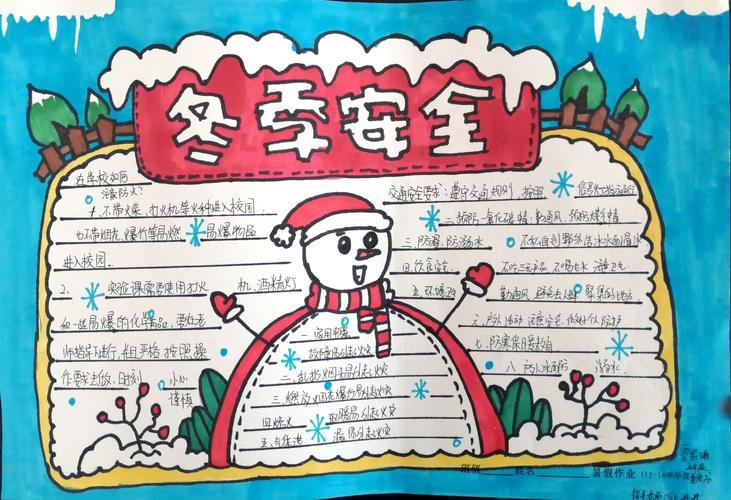 冬季安全
在学校如何
注意防火?
1. 不带火柴、打火机等火种进入校园.
也不带烟花、爆竹等易燃 易爆物品
进入校园.
2、 实验课需要使用打火 机、酒精灯
和一些易爆的化学品,要在老
师指导下进行,并且严格按照操
作要求去做,时刻 小心
谨慎
一、家用电器
故障易引起火灾
二、乱扔烟头易引起火灾
三、燃放烟花爆竹易引起火灾
四、烧火 取暖易引起火灾
五、 温易引起火灾
交通安全要求:遵守交通规则 按照 信号灯指示通行
二、预防一氧化碳 勤通风 预防煤气中毒
三、防滑、防溺水 不私自到野外结冰水面溜冰
四、饮食安全 不吃三无产品 不喝生水 注意卫生
五、环境卫生 勤通风 避免去人群 聚集的地方
六、户外活动 注意安全 做好个人防护
七、防寒保暖
八、户外水面防 溺水.
班级 姓名 暑假作业 (15-16学年